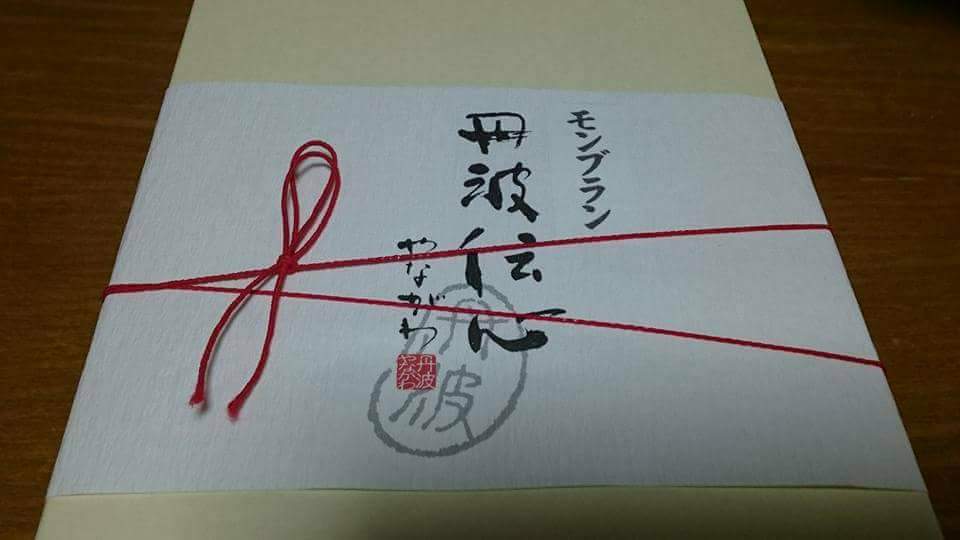 モンブラン
丹波伝心
やながわ
丹波
やながわ
丹波